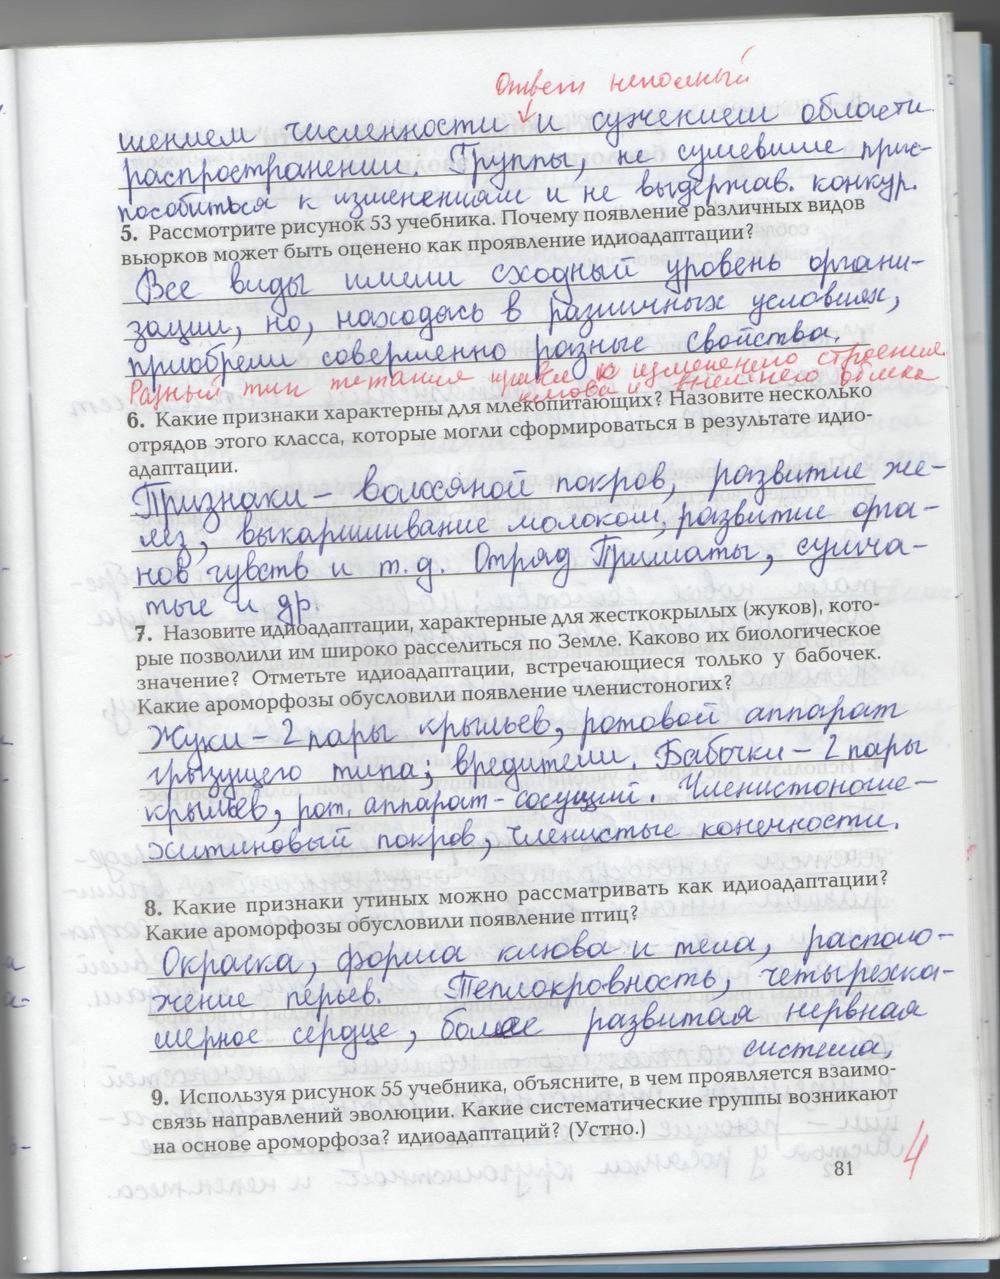 Ответ неполный
шением численности и сужением области
распространении. Группы, не сумевшие прис-
пособиться к изменениям и не выдержав. конкур.
5. Рассмотрите рисунок 53 учебника. Почему появление различных видов
вьюрков может быть оценено как проявление идиоадаптации?
Все виды имели сходный уровень органи-
зации, но, находясь в различных условиях,
приобрели совершенно разные свойства.
Разный тип питания привел к изменению строения
клюва и внешнего облика
6. Какие признаки характерны для млекопитающих? Назовите несколько
отрядов этого класса, которые могли сформироваться в результате идио-
адаптации.
Признаки – волосяной покров, развитие же-
лез, выкармливание молоком, развитие орга-
нов чувств и т.д. Отряд Приматы, сумча-
тые и др.
7. Назовите идиоадаптации, характерные для жесткокрылых (жуков), кото-
рые позволили им широко расселиться по Земле. Каково их биологическое
значение? Отметьте идиоадаптации, встречающиеся только у бабочек.
Какие ароморфозы обусловили появление членистоногих?
Жуки – 2 пары крыльев, ротовой аппарат
грызущего типа; вредители. Бабочки – 2 пары
крыльев, рот. аппарат – сосущий. Членистоногие –
хитиновый покров, членистые конечности.
8. Какие признаки утиных можно рассматривать как идиоадаптации?
Какие ароморфозы обусловили появление птиц?
Окраска, форма клюва и тела, располо-
жение перьев. Теплокровность, четырехка-
мерное сердце, более развитая нервная
система,
9. Используя рисунок 55 учебника, объясните, в чем проявляется взаимо-
связь направлений эволюции. Какие систематические группы возникают
на основе ароморфоза? идиоадаптаций? (Устно.)
4
81